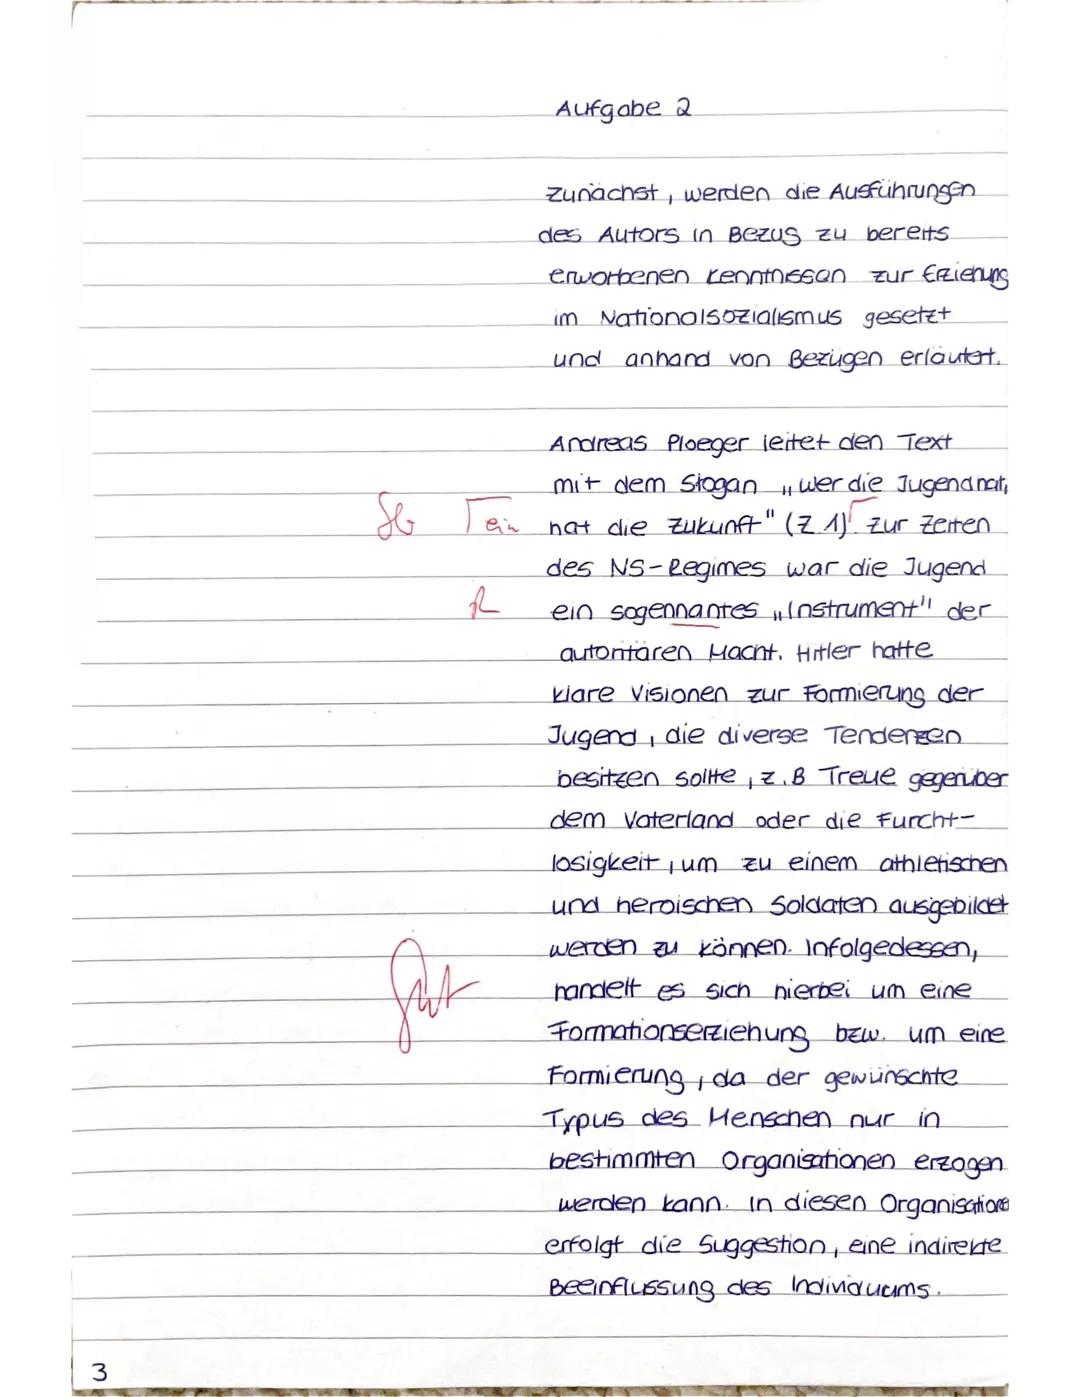 Aufgabe 2
zunächst, werden die Ausführungen
des Autors in Bezug zu bereits
erworbenen Kenntnissen zur Erziehung
im Nationalsozialismus gesetzt
und anhand von Bezügen erläutert.
Andreas Ploeger leitet den Text
mit dem Slogan „wer die Jugend hat,
Sb ein hat die Zukunft" (Z 1). Zur Zeiten
des NS-Regimes war die Jugend
R ein sogennantes „Instrument" der
autoritären Macht. Hitler hatte
klare Visionen zur Formierung der
Jugend, die diverse Tendenzen
besitzen sollte, z.B Treue gegenüber
dem Vaterland oder die Furcht-
losigkeit, um zu einem athletischen
und heroischen Soldaten ausgebildet
werden zu können. Infolgedessen,
Gut handelt es sich hierbei um eine
Formationserziehung bzw. um eine
Formierung, da der gewünschte
Typus des Menschen nur in
bestimmten Organisationen erzogen
werden kann. In diesen Organisatione
erfolgt die Suggestion, eine indirekte
Beeinflussung des Individuums.
3